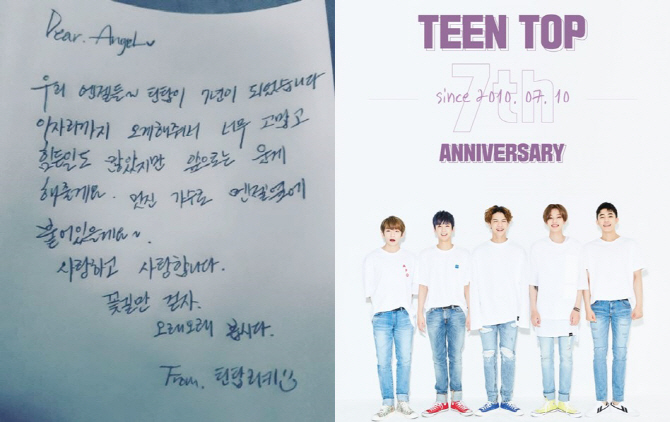 Dear. Angel
우리 엔젤들~ 틴탑이 7년이 되었습니다
이자리까지 오게해줘서 너무 고맙고
힘든일도 많았지만 앞으로는 웃게
해줄게요. 멋진 가수로 엔젤옆에
붙어있을게요~.
사랑하고 사랑합니다.
꽃길만 걷자.
오래오래 봅시다.
From. 틴탑리더
TEEN TOP
7th
since 2010. 07. 10
ANNIVERSARY